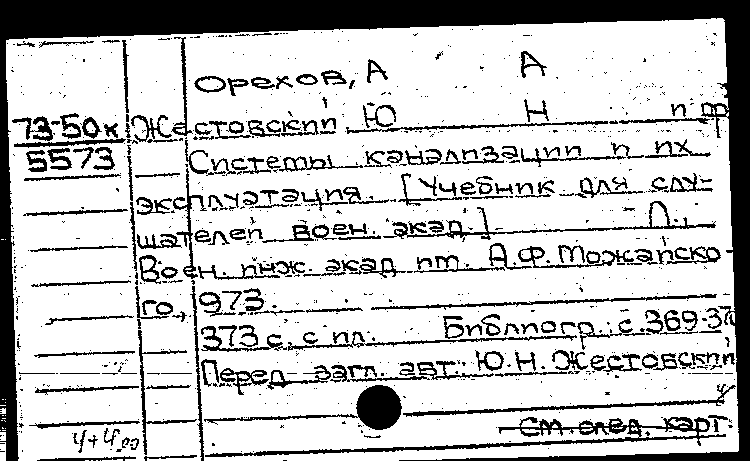 Орехов, А А
73-50к Жестовский Ю Н и др
5573 Системы канализации и их
эксплуатация. [Учебник для слу-
шателей воен. акад.] Л.,
Воен. инж. акад им. А.Ф. Можайско-
го, 973.
373 с. с ил. Библиогр.: с. 369-370
Перед загл. авт.: Ю.Н. Жестовский
См. след. карт.